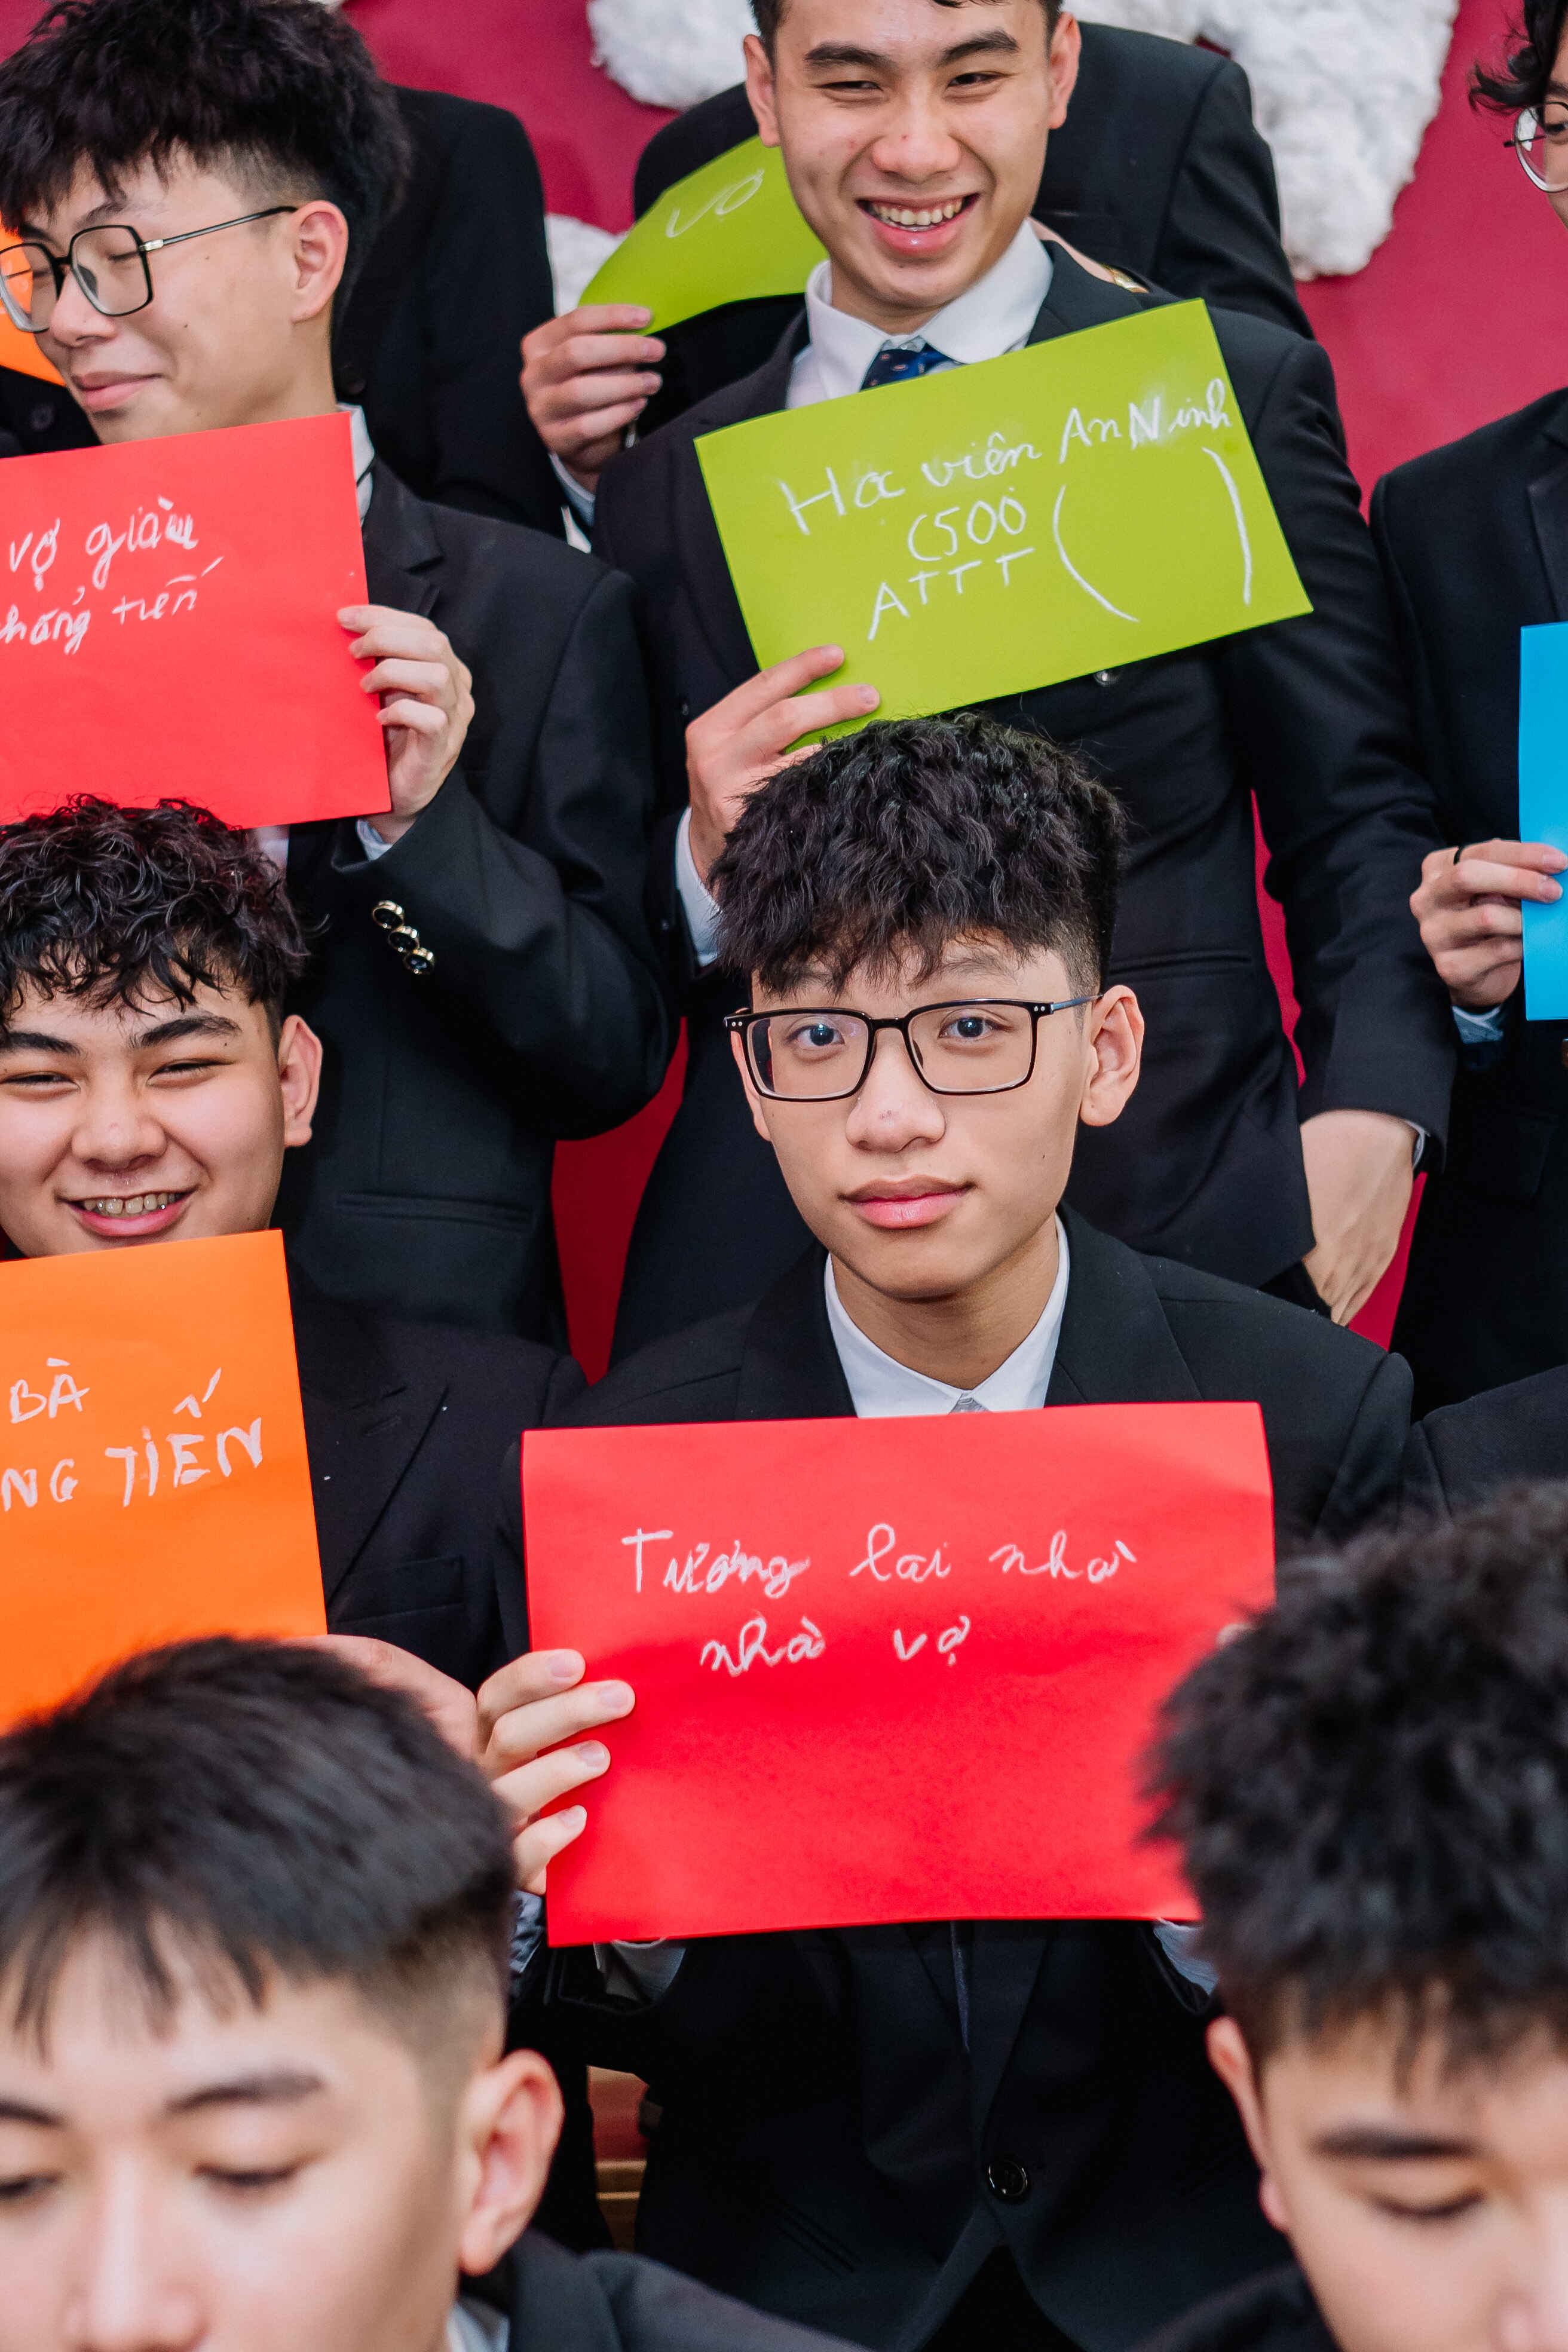 vợ
Học viên An Ninh
C500
ATTT (          )
vợ giàu
thăng tiến
BÀ
NG TIẾN
Tương lai nhờ
nhà vợ